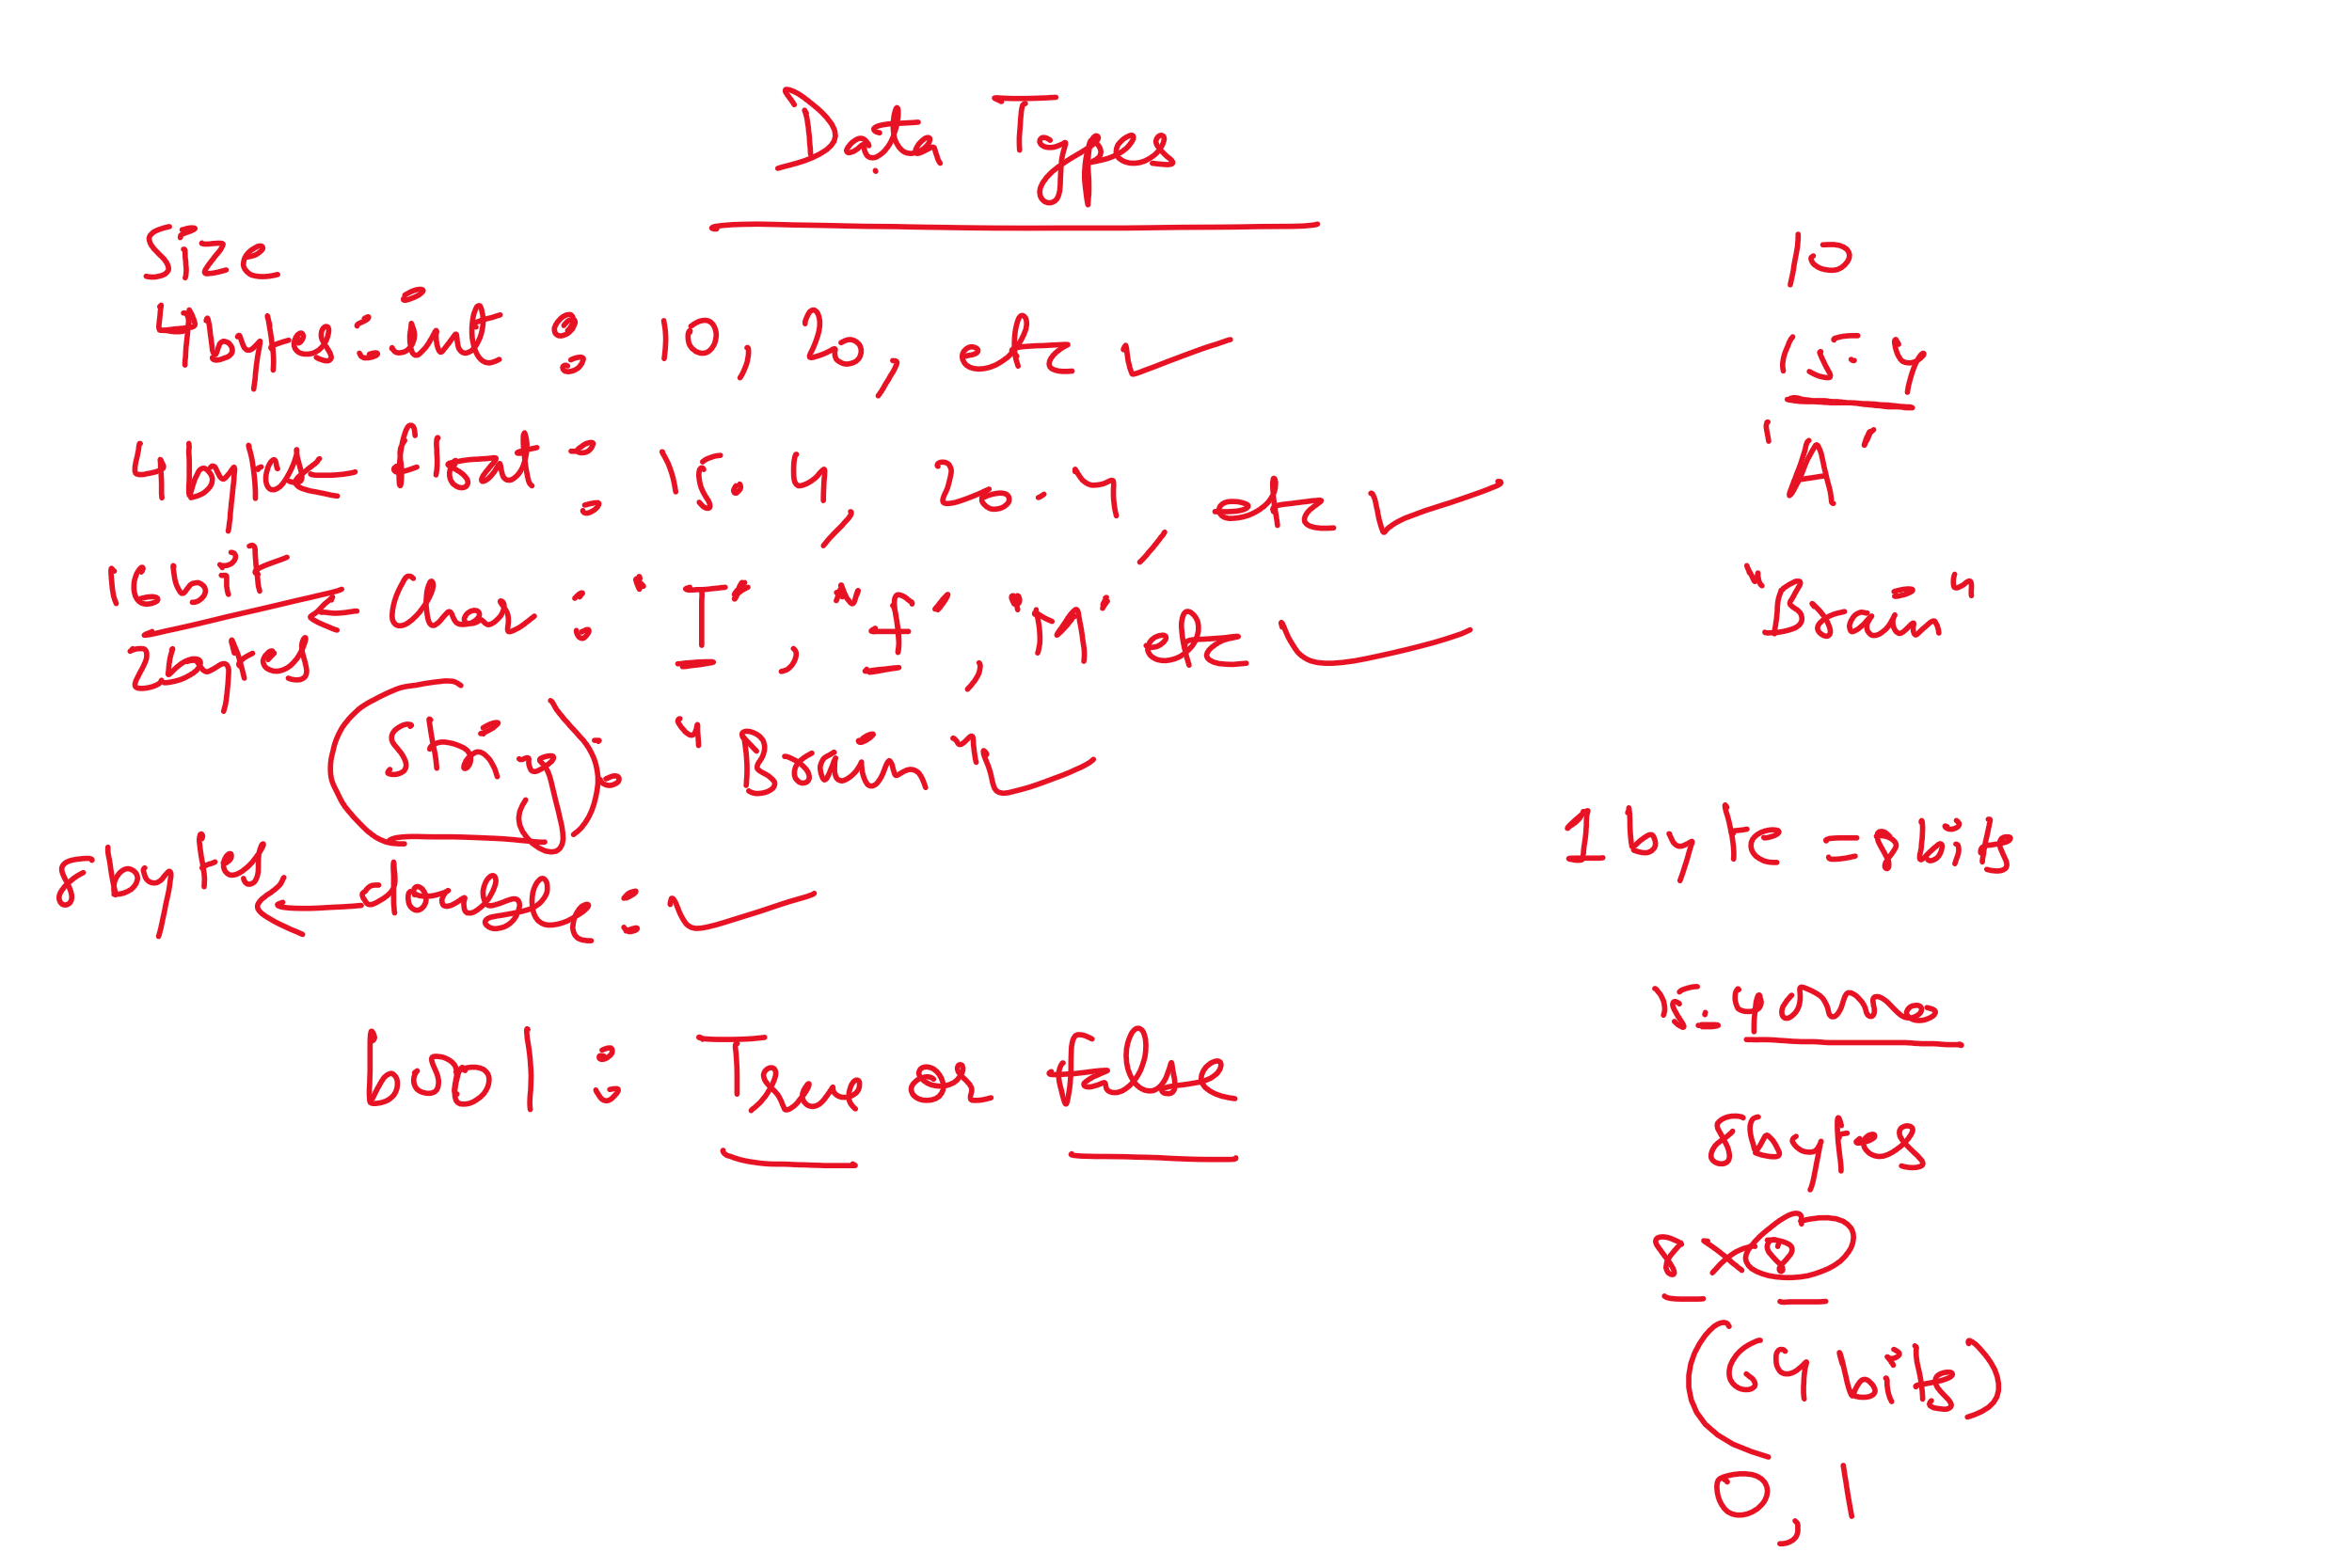 Data Types
Size
4bytes : int : 10, 20, etc
4byte float : 15.4, 20.4, etc
16 bit
2bytes char : "I", "f", "M" etc
String : "Brain"
8 bytes double :
bool : True or false
10
15.4
"A"
"Brain"
1 byte = 8 bits
15.4
8bytes
8 x 8
(64 bits)
0, 1